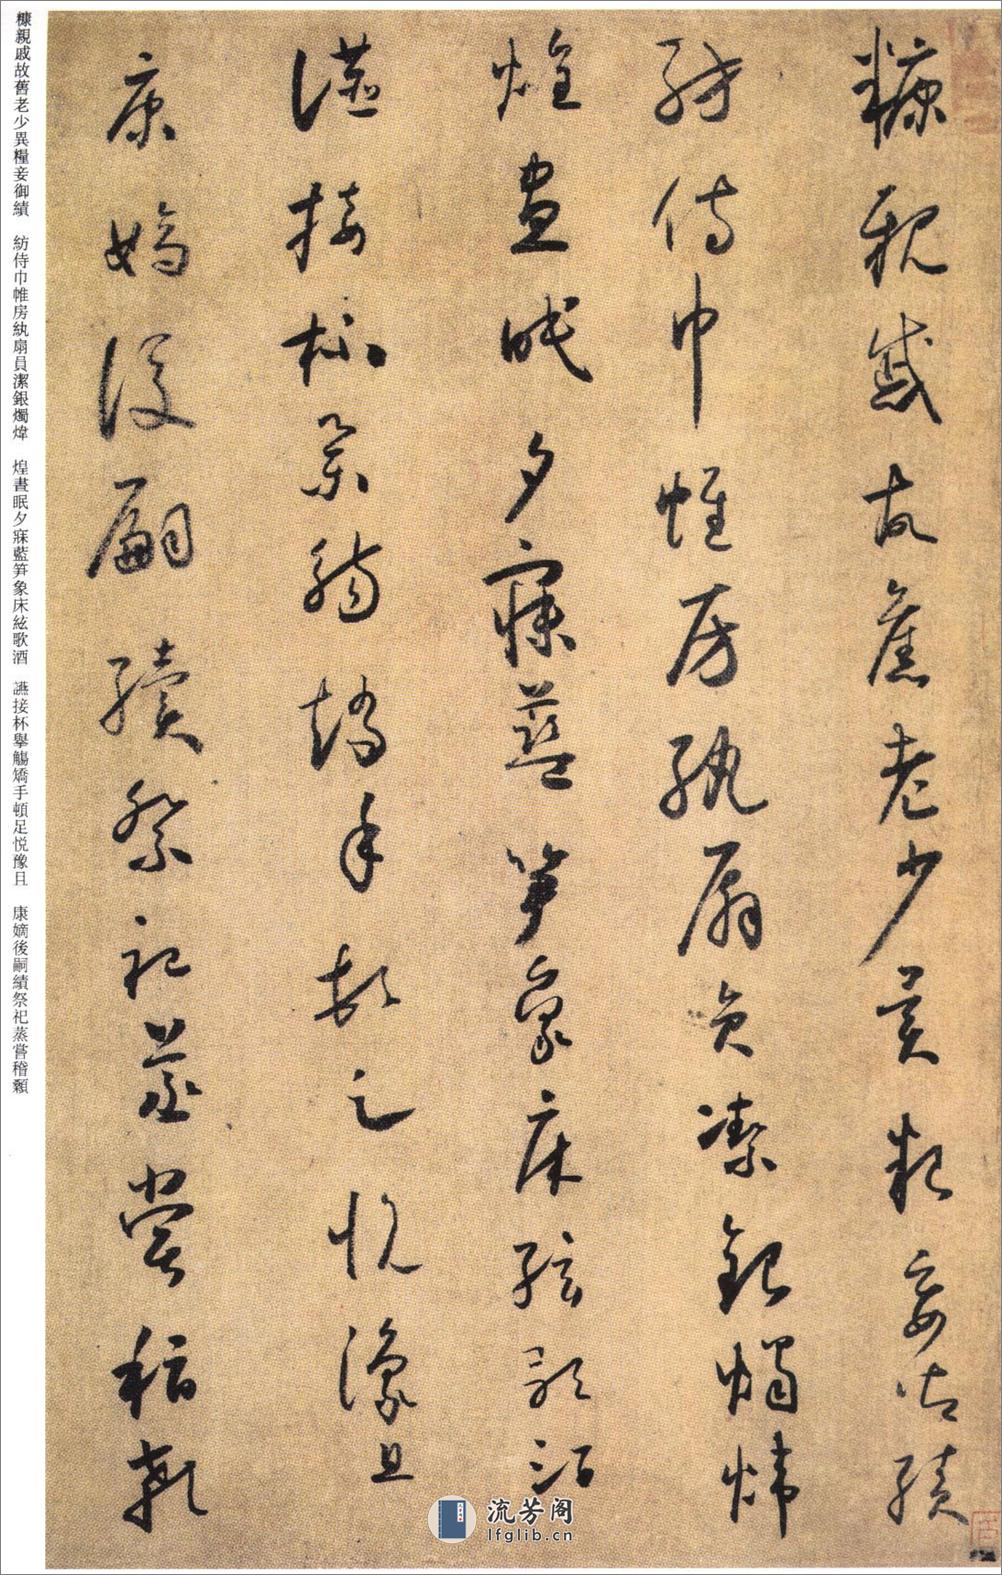 糠親戚故舊老少異糧妾御績
紡侍巾帷房紈扇員潔銀燭煒
煌晝眠夕寐藍笋象床絃歌酒
讌接杯舉觴矯手頓足悦豫且
康嫡後嗣續祭祀蒸嘗稽顙
糠親戚故舊老少異糧妾御績 紡侍巾帷房紈扇員潔銀燭煒 煌晝眠夕寐藍笋象床絃歌酒 讌接杯擧觴矯手頓足悦豫且 康嫡後嗣績祭祀蒸嘗稽顙
流芳阁
lfglib.cn